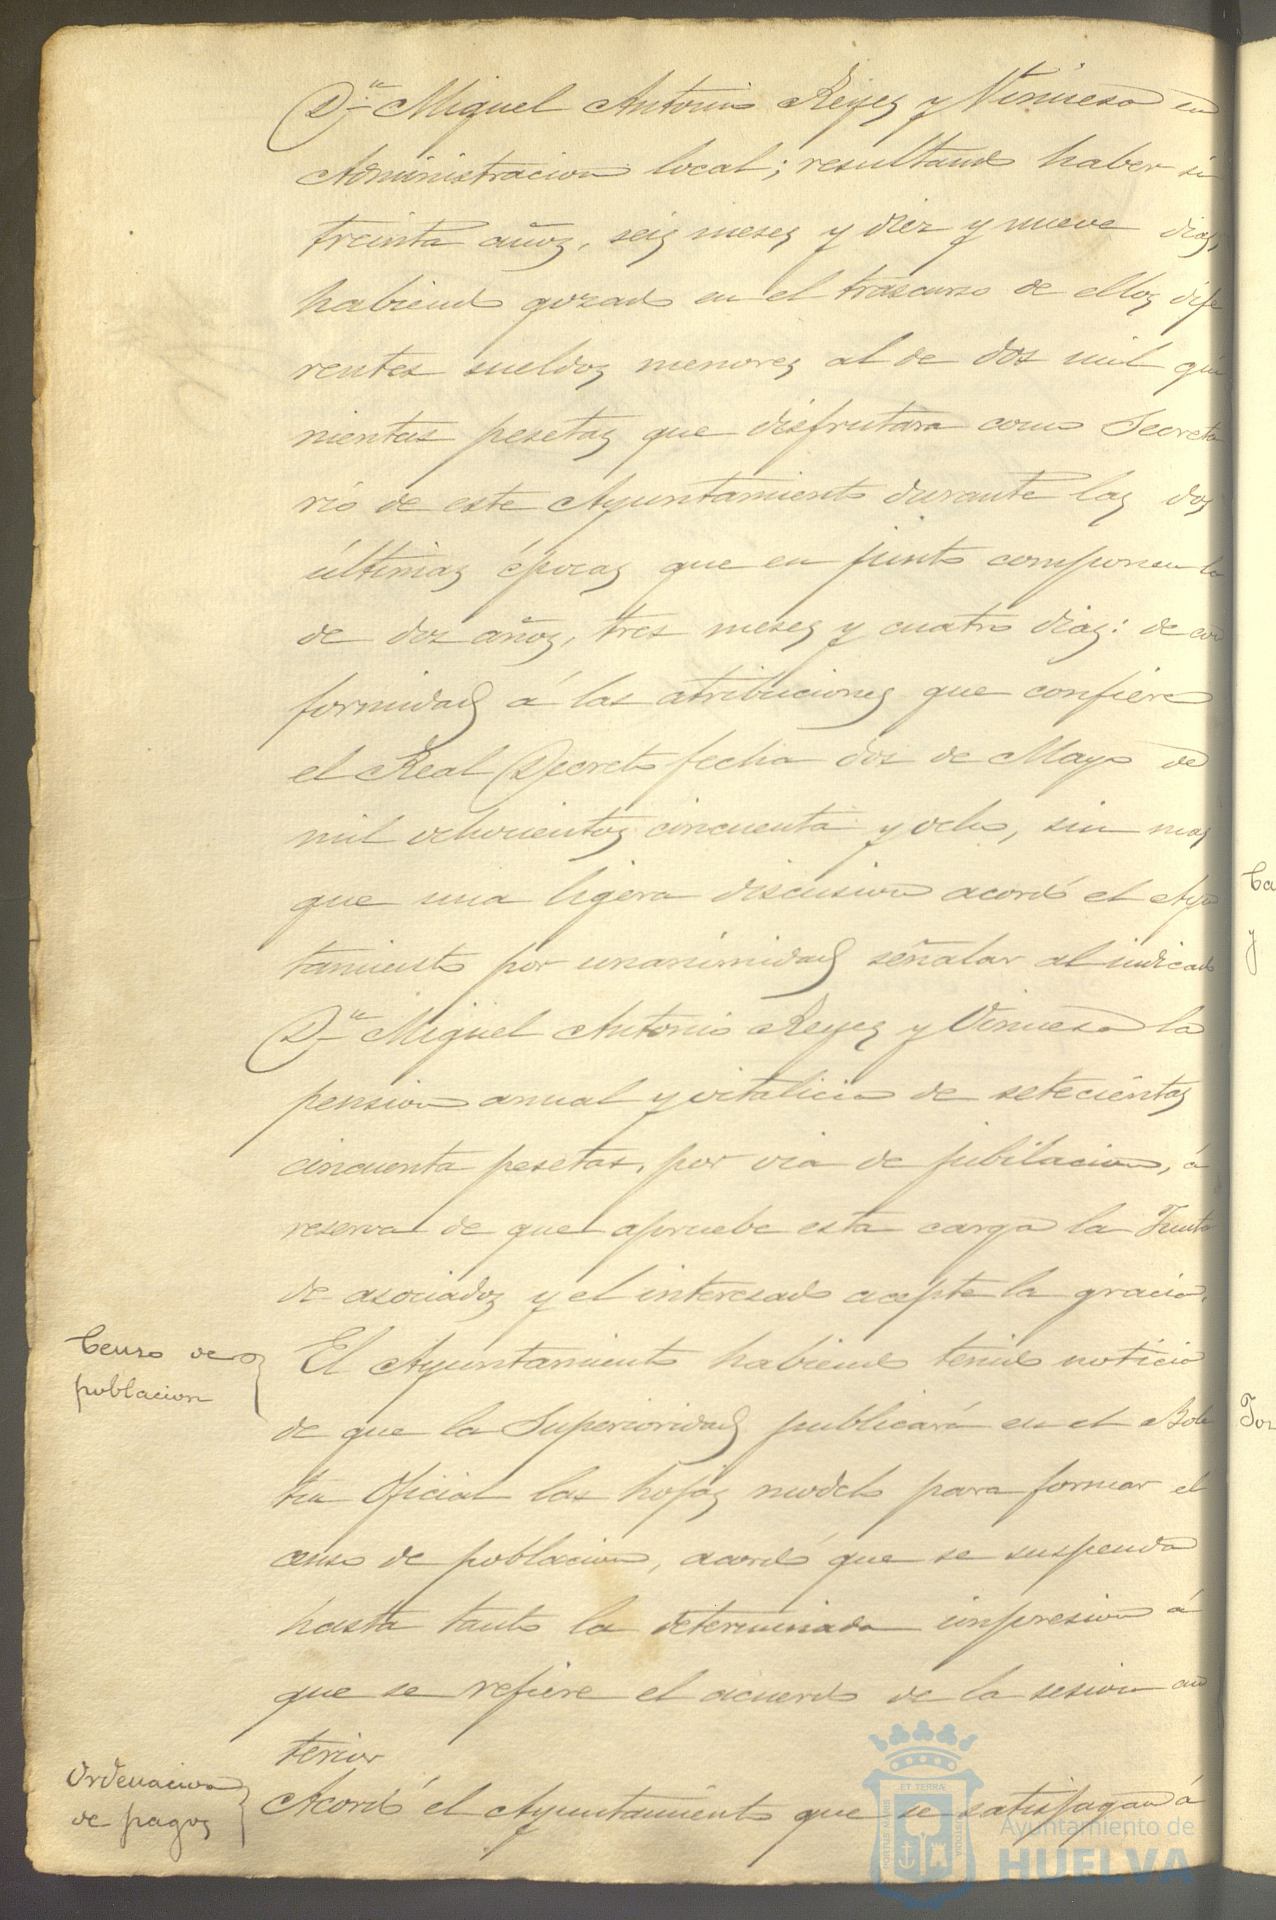 Dn Miguel Antonio Reyes y Vinuesa en
Administracion local; resultando haber si
treinta años, seis meses y diez y nueve dias,
habiendo gozado en el trascurso de ellos dife
rentes sueldos menores al de dos mil qui
nientas pesetas que disfrutara como Secreta
rio de este Ayuntamiento durante las dos
últimas épocas que en junto componen la
de dos años, tres meses y cuatro dias: de con
formidad á las atribuciones que confiere
el Real Decreto fecha dos de Mayo de
mil ochocientos cincuenta y ocho, sin mas
que una ligera discusion acordó el Ayun
tamiento por unanimidad señalar al indicado
Dn Miguel Antonio Reyes y Vinuesa la
pension anual y vitalicia de setecientas
cincuenta pesetas, por via de jubilacion, á
reserva de que apruebe esta carga la Junta
de asociados y el interesado acepte la gracia.
Censo de
poblacion
El Ayuntamiento habiendo tenido noticia
de que la Superioridad publicará en el Bole
tin Oficial las hojas modelo para formar el
censo de poblacion, acordó que se suspenda
hasta tanto la determinada impresion á
que se refiere el acuerdo de la sesion an
terior
Ordenacion
de pagos
Acordó el Ayuntamiento que se satisfagan á
Ayuntamiento de
HUELVA